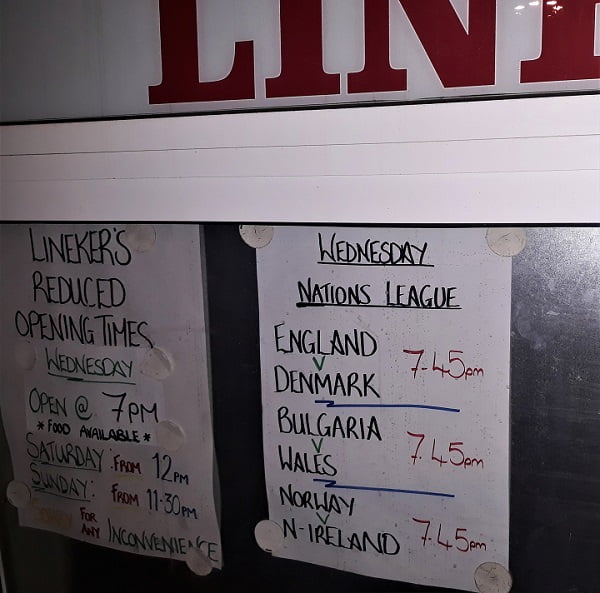 LINE
LINEKER'S
REDUCED
OPENING TIMES
WEDNESDAY
OPEN @ 7PM
* FOOD AVAILABLE *
SATURDAY: FROM 12PM
SUNDAY: FROM 11-30PM
SORRY FOR ANY INCONVENIENCE
WEDNESDAY
NATIONS LEAGUE
ENGLAND
V 7-45pm
DENMARK
BULGARIA
V 7.45pm
WALES
NORWAY
V
N-IRELAND 7.45pm